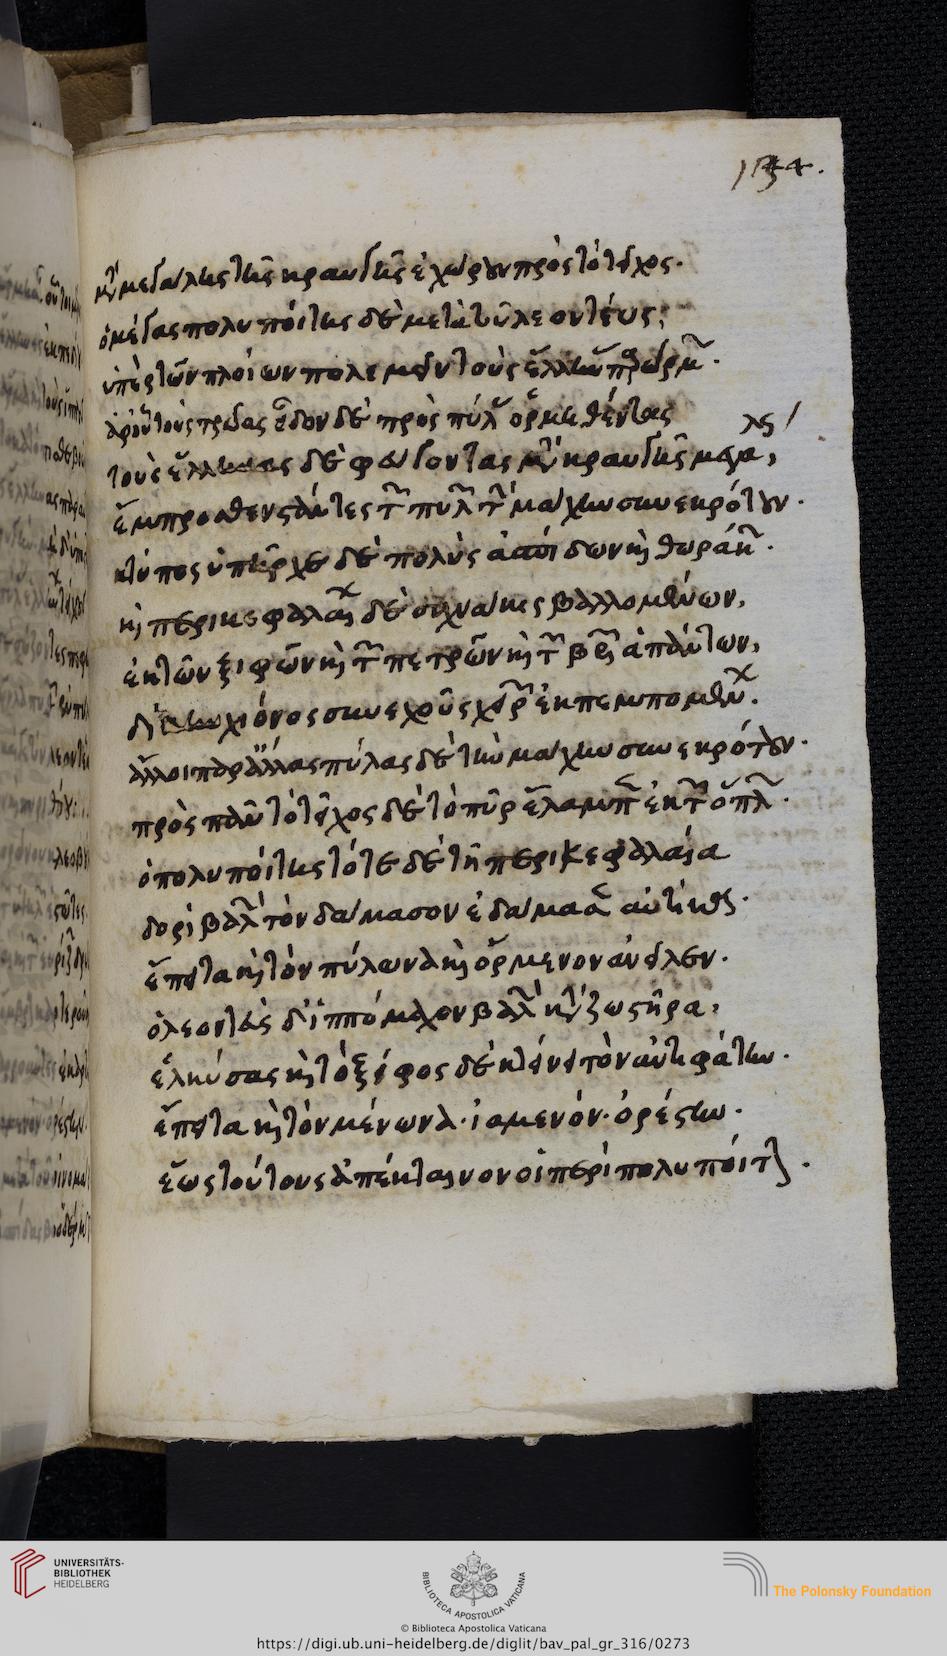 134.
μετὰ μεγάλης τῆς κραυγῆς ἐχώρουν πρὸς τὸ τεῖχος.
ὁ μέγας πολυποίτης δὲ μετὰ τοῦ λεοντέως,
ὑπὲρ τῶν πλοίων πολεμεῖν τοὺς ἕλληνας
τοὺς τρῶας εἶδον δὲ πρὸς πύλας ὁρμηθέντας
τοὺς ἕλληνας δὲ φεύγοντας μετὰ κραυγῆς
ἔμπροσθεν στάντες τῶν πυλῶν τὴν μάχην συνεκρότουν.
κτύπος ὑπῆρχε δὲ πολὺς ἀσπίδων καὶ θωράκων.
καὶ περικεφαλαίων δὲ συχναῖς βαλλομένων,
ἐκ τῶν ξιφῶν καὶ τῶν πετρῶν καὶ τῶν βελῶν ἁπάντων,
χιόνος συνεχοῦς ἐκπεμπομένων.
ἄλλοι παρ' ἄλλας πύλας δὲ τὴν μάχην συνεκρότουν.
πρὸς πᾶν τὸ τεῖχος δὲ τὸ πῦρ ἔλαμπεν ἐκ τῶν ὅπλων.
ὁ πολυποίτης τότε δὲ τῇ περικεφαλαίᾳ
δορὶ βαλὼν τὸν δάμασον ἐδάμασεν αὐτίκα.
ἔπειτα καὶ τὸν πύλωνα καὶ ὄρμενον ἀνεῖλεν.
ὁ λεοντεὺς δ' ἱππόμαχον βαλὼν κατὰ ζωστῆρα,
ἑλκύσας καὶ τὸ ξίφος δὲ κτείνει τὸν ἀντιφάτην.
ἔπειτα καὶ τὸν μένωνα. ἰαμενόν. ὀρέστην.
ἕως τούτους ἀπέκταινον οἱ περὶ πολυποίτην.
UNIVERSITÄTS-
BIBLIOTHEK
HEIDELBERG
BIBLIOTECA APOSTOLICA VATICANA
The Polonsky Foundation
© Biblioteca Apostolica Vaticana
https://digi.ub.uni-heidelberg.de/diglit/bav_pal_gr_316/0273